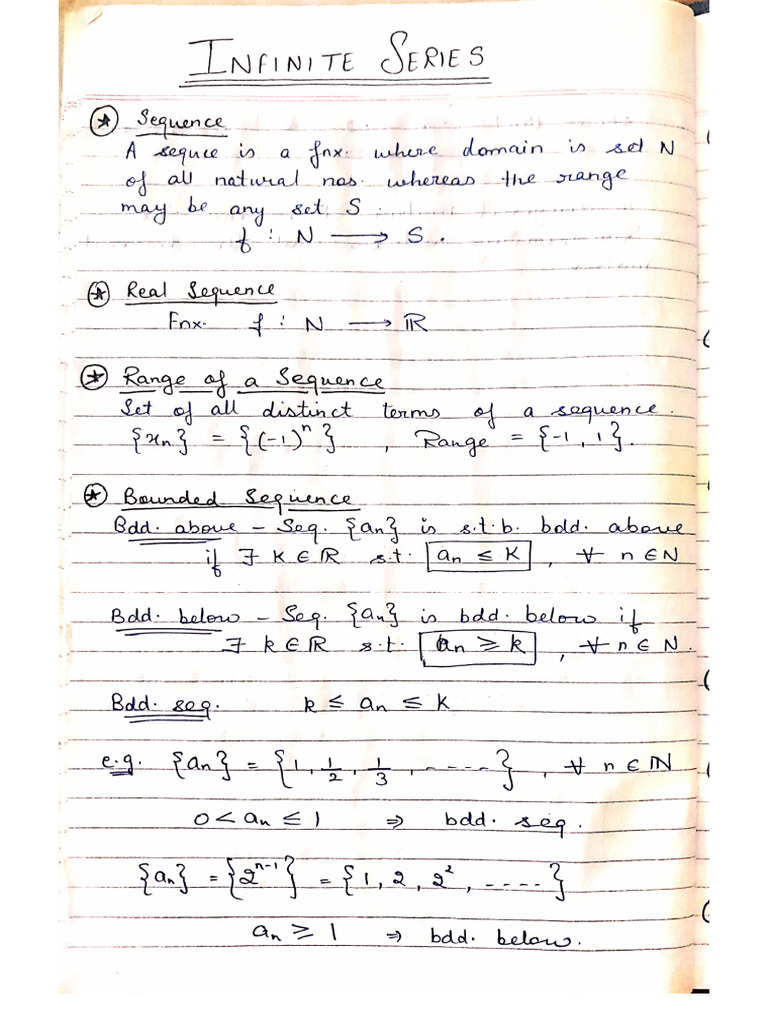 INFINITE SERIES
⊛ Sequence
A sequce is a fnx. where domain is set N
of all natural nos. whereas the range
may be any set S.
f : N ⟶ S.
⊛ Real Sequence
Fnx. f : N ⟶ ℝ
⊛ Range of a Sequence
Set of all distinct terms of a sequence.
{xn} = {(-1)^n} , Range = {-1, 1}.
⊛ Bounded Sequence
Bdd. above – Seq. {an} is s.t.b. bdd. above
if ∃ K ∈ ℝ s.t. an ≤ K , ∀ n ∈ N
Bdd. below – Seq. {an} is bdd. below if
∃ k ∈ ℝ s.t. an ≥ k , ∀ n ∈ N.
Bdd. seq. k ≤ an ≤ K
e.g. {an} = {1, 1/2, 1/3, -----} , ∀ n ∈ ℕ
0 < an ≤ 1 ⇒ bdd. seq.
{an} = {2^(n-1)} = {1, 2, 2^2, ----}
an ≥ 1 ⇒ bdd. below.